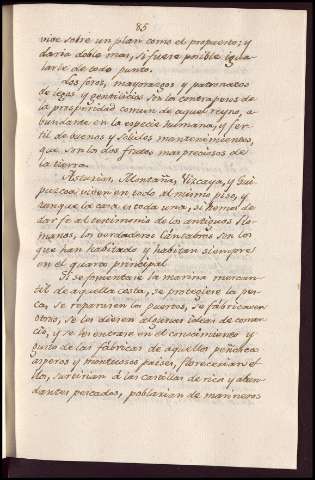 85
vive sobre un plan como el propuesto; y
daria doble mas, si fuere posible igua-
larle de todo punto.
Los foros, mayorazgos y patronatos
de legos y gentilicios son los contrapesos de
la prosperidad comun de aquel reyno, a-
bundante en la especie humana, y fer-
til de buenos y solidos mantenimientos,
que son los dos frutos mas preciosos de
la tierra.
Asturias, Montaña, Vizcaya, y Gui-
puzcoa viven en todo al mismo piso, y
aunque la casa es toda una, si hemos de
dar fe al testimonio de los antiguos Ro-
manos, los verdaderos Cántabros son los
que han habitado y habitan siempre
en el quarto principal.
Si se fomentase la marina mercan-
til de aquella costa, se protegiese la pes-
ca, se reparasen los puertos, se fabricasen
otros, se les diesen algunas ideas de comer-
cio, y se les entrase en el conocimiento y
gusto de las fábricas de aquellos peñascos
asperos y montuosos paises, florecerian e-
llos, surtirian á las Castillas de rica y abun-
dantes pescados, poblarian de marineros